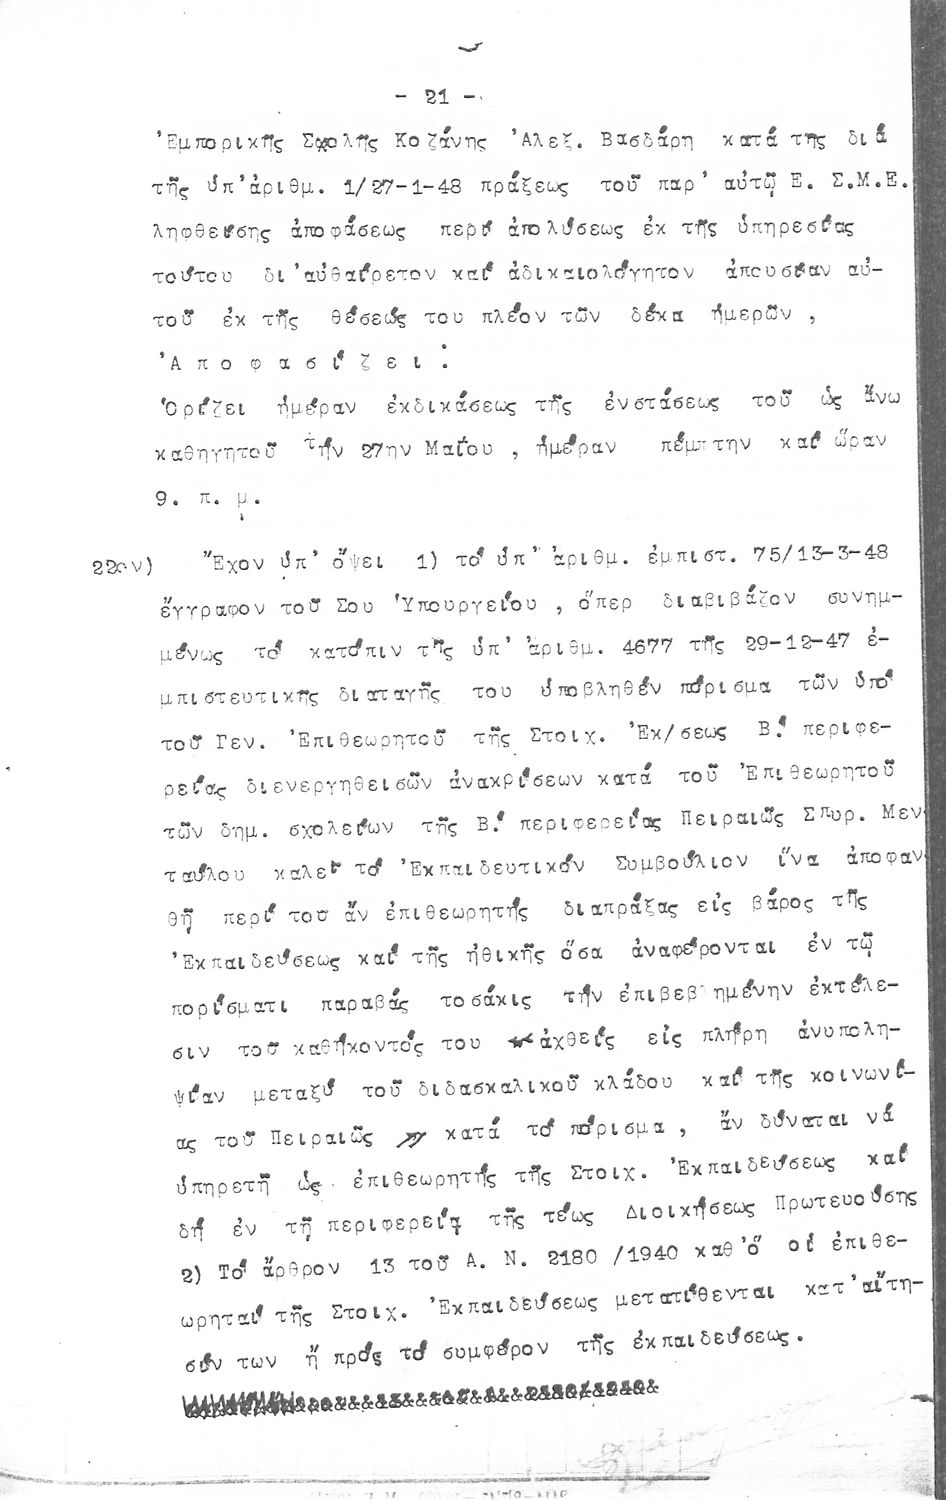 - 21 -
Ἐμπορικῆς Σχολῆς Κοζάνης Ἀλεξ. Βασδάρη κατά της διά
τῆς ὑπ' ἀριθμ. 1/27-1-48 πράξεως τοῦ παρ' αὐτῷ Ε. Σ.Μ.Ε.
ληφθείσης ἀποφάσεως περί ἀπολύσεως ἐκ τῆς ὑπηρεσίας
τούτου δι' αὐθαίρετον καί ἀδικαιολόγητον ἀπουσίαν αὐ-
τοῦ ἐκ τῆς θέσεώς του πλέον τῶν δέκα ἡμερῶν ,
Ἀ π ο φ α σ ί ζ ε ι :
Ὁρίζει ἡμέραν ἐκδικάσεως τῆς ἐνστάσεως τοῦ ὡς ἄνω
καθηγητοῦ τήν 27ην Μαΐου , ἡμέραν πέμπτην καί ὥραν
9. π. μ.
22ον) Ἔχον ὑπ' ὄψει 1) τό ὑπ' ἀριθμ. ἐμπιστ. 75/13-3-48
ἔγγραφον τοῦ Σου Ὑπουργείου , ὅπερ διαβιβάζον συνημ-
μένως τό κατόπιν τῆς ὑπ' ἀριθμ. 4677 τῆς 29-12-47 ἐ-
μπιστευτικῆς διαταγῆς του ὑποβληθέν πόρισμα τῶν ὑπό
τοῦ Γεν. Ἐπιθεωρητοῦ τῆς Στοιχ. Ἐκ/σεως Β.' περιφε-
ρείας διενεργηθεισῶν ἀνακρίσεων κατά τοῦ Ἐπιθεωρητοῦ
τῶν δημ. σχολείων τῆς Β.' περιφερείας Πειραιῶς Σπυρ. Μεν
ταύλου καλεῖ τό Ἐκπαιδευτικόν Συμβούλιον ἵνα ἀποφαν
θῇ περί του ἄν ἐπιθεωρητής διαπράξας εἰς βάρος τῆς
Ἐκπαιδεύσεως καί τῆς ἠθικῆς ὅσα ἀναφέρονται ἐν τῷ
πορίσματι παραβάς τοσάκις τήν ἐπιβεβλημένην ἐκτέλε-
σιν του καθήκοντός του ἀχθείς εἰς πλήρη ἀνυπολη-
ψίαν μεταξύ τοῦ διδασκαλικοῦ κλάδου καί τῆς κοινωνί-
ας τοῦ Πειραιῶς κατά τό πόρισμα , ἄν δύναται νά
ὑπηρετῇ ὡς ἐπιθεωρητής τῆς Στοιχ. Ἐκπαιδεύσεως καί
δή ἐν τῇ περιφερείᾳ τῆς τέως Διοικήσεως Πρωτευούσης
2) Τό ἄρθρον 13 τοῦ Α. Ν. 2180 /1940 καθ' ὅ οἱ ἐπιθε-
ωρηταί τῆς Στοιχ. Ἐκπαιδεύσεως μετατίθενται κατ' αἴτη-
σίν των ἤ πρός τό συμφέρον τῆς ἐκπαιδεύσεως.